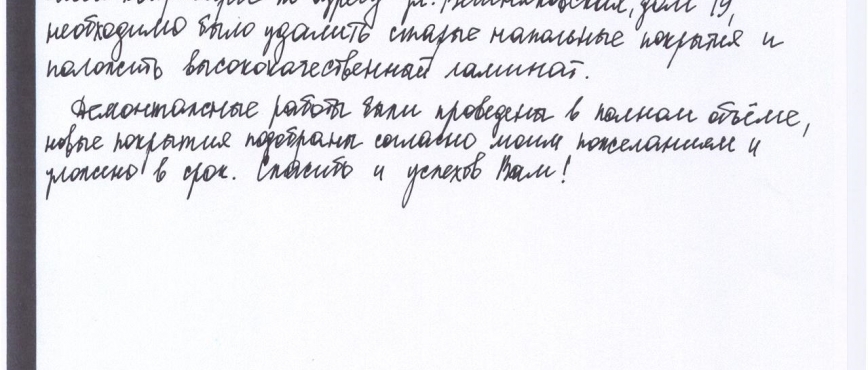 по адресу ул. дом 19,
необходимо было удалить старые напольные покрытия и
положить высококачественный ламинат.
Демонтажные работы были проведены в полном объёме,
новые покрытия подобраны согласно моим пожеланиям и
уложено в срок. Спасибо и успехов Вам!